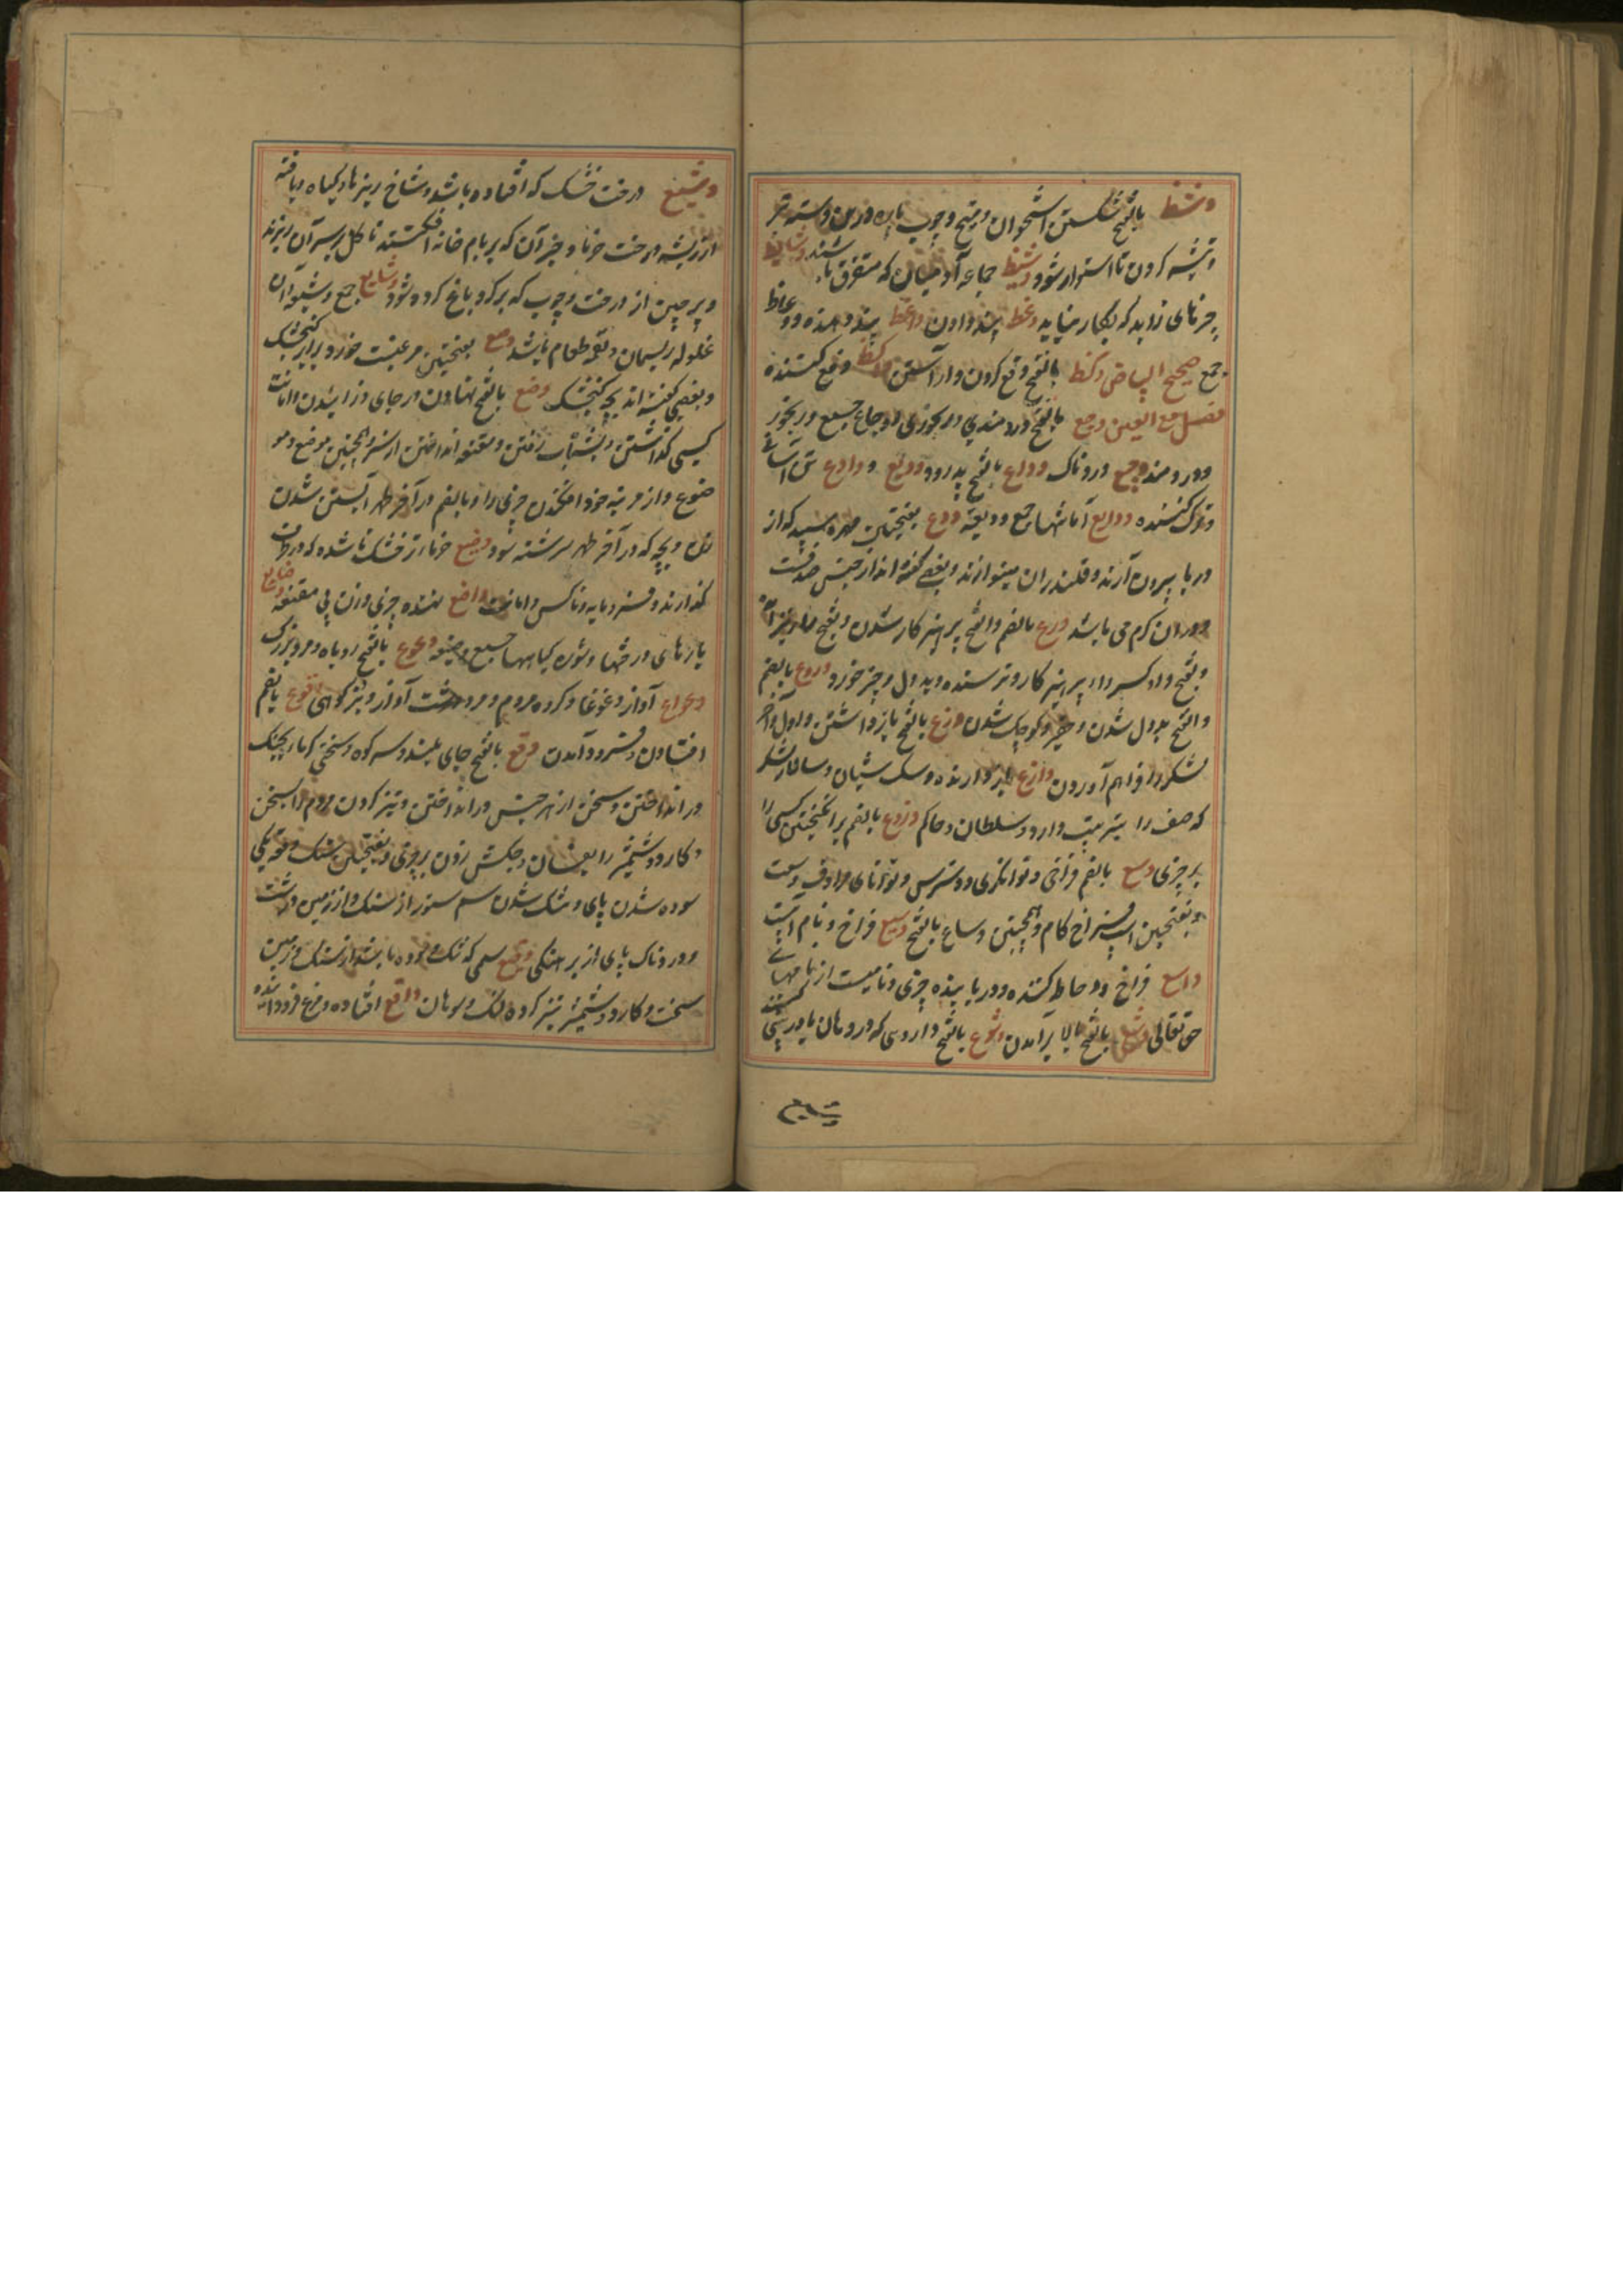 وشظ بالفتح شکستن استخوان و میخ و چوب پاره
و تیشه کردن تا استوار شود وشیظ جماعه آدمیان که متفرق باشند وشایظ
چیزهای زاید که بکار نیاید وعظ پند دادن واعظ پند دهنده وعاظ
جمع صحیح البیاض وکظ بالفتح دفع کردن واکظ دفع کننده
فصل مع العین وجع بالفتح دردمندی و رنجوری اوجاع جمع و رنجور
و دردمند وجع دردناک وداع بالفتح پدرود ودیع و وادع تن آسا
و ترک کننده ودایع امانتها جمع ودیعه ودع بفتحتین مهره سپید که از
دریا بیرون آرند و قلندران مینوازند و بعضی گفته اند از جنس صدفست
و در آن کرم می باشد ورع بالضم والفتح پرهیزکار شدن و بفتح
و بفتح واو کسر را پرهیزکار و ترسنده و بددل و چیز خورد وروع بالضم
والفتح بددل شدن و حقیر و کوچک شدن وزع بالفتح باز داشتن و اول و آخر
لشکر را فراهم آوردن وازع باز دارنده و سک شبان و سالار لشکر
که صف را بترتیب دارد و سلطان و حاکم وزوع بالضم برانگیختن کسی را
بر چیزی وسع بالضم فراخی و توانگری و دسترس و توانای مرادف وسعت
و بفتحین اسپ فراخ کام و همچنین وساع بالفتح وسیع فراخ و نام آبیست
واسع فراخ و احاطه کننده و دریابنده چیزی و نامیست از نامهای
حق تعالی وشع بالفتح بالا برآمدن وشوع بالفتح داروی که در دهان
وشیع
وشیع درخت خشک که افتاده باشد و شاخ ریزها و گیاه بافته
از ریشه درخت خرما و جز آن که بر بام خانه افکنند تا گل بر سر آن ریزند
و پرچین از درخت و چوب که بر گرد باغ کرده شود وشایع جمع وشیعه و آن
غلوله ریسمان و بقیه طعام باشد وصع بفتحتین مرغیست خورد برابر گنجشک
و بعضی گفته اند بچه گنجشک وضع بالفتح نهادن در جای و زاییدن و امانت
کسی گذاشتن و بشتاب رفتن و مقنعه انداختن از سر و همچنین موضع و مو
ضوع و از مرتبه خود افکندن چیزی را و بالضم در آخر طهر آبستن شدن
زن و بچه که در آخر طهر سرشته شود وضیع خرما تر خشک ناشده که در ظرف
گذارند و فرو مایه و ناکس و امانت واضع نهنده چیزی و زن بی مقنعه وضایع
بارهای درختها و شوره گیاهها جمع وضیعه وعوع بالفتح روباه و مرد بزرگ
وعواع آواز و غوغا و گروه مردم و مرد درشت آواز و بز کوهی وقوع بالضم
افتادن و فرود آمدن وقع بالفتح جای بلند و سر کوه و سختی گرما و بجنک
در انداختن و سخن از هر جنس در انداختن و تیز کردن مردم را بسخن
و کارد و شمشیر را بفسان و چکش زدن بر چیزی و بفتحتین سنگ و تنکی
سوده شدن پای و تنک شدن سم ستور از سنک و از زمین درشت
و دردناک پای از برهنگی وقیع سمی که تنک و سوده باشد از سنک و زمین
سخت و کارد و شمشیر تیز کرده و سوهان واقع افتاده و مرغ فرود آینده